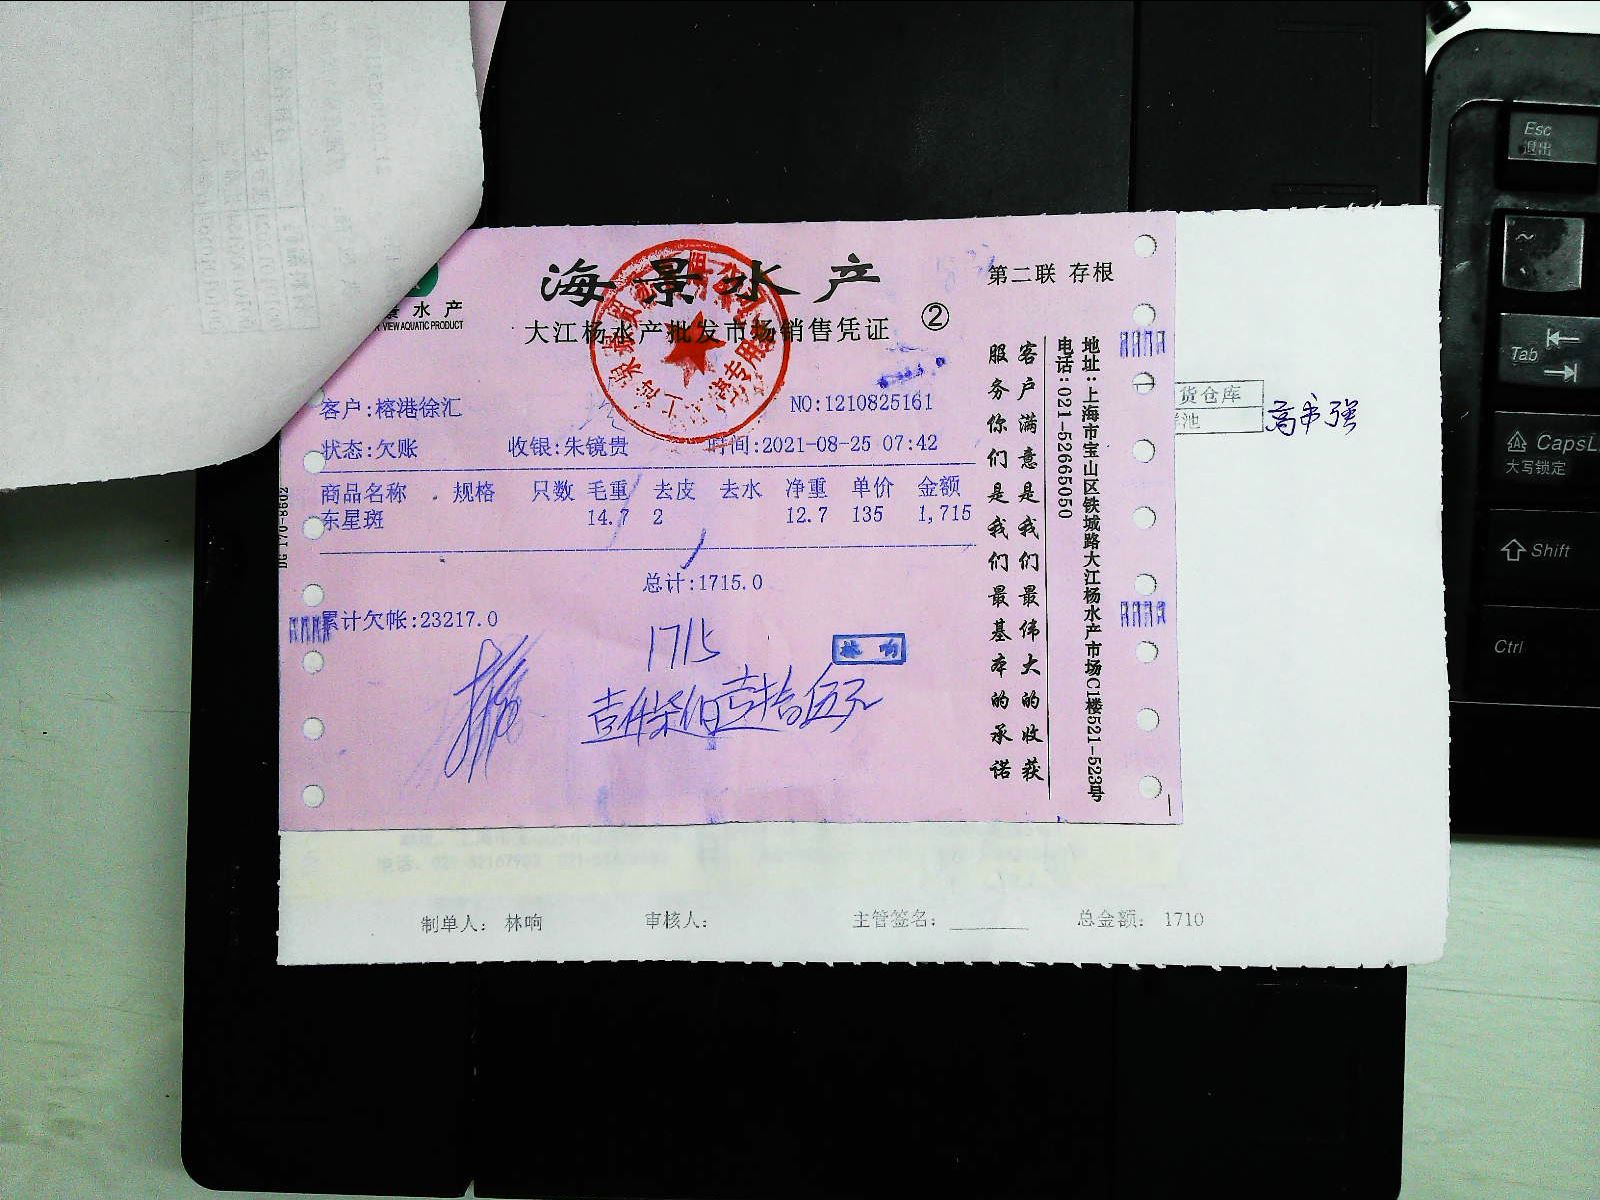 海景水产
第二联 存根
景水产
VIEW AQUATIC PRODUCT
大江杨水产批发市场销售凭证
②
客户:榕港徐汇
NO:1210825161
状态:欠账 收银:朱镜贵 时间:2021-08-25 07:42
商品名称 规格 只数 毛重 去皮 去水 净重 单价 金额
东星斑 14.7 2 12.7 135 1,715
总计:1715.0
累计欠帐:23217.0
1715
林响
壹仟柒佰壹拾伍元
客户满意是我们最伟大的收获
服务你们是我们最基本的承诺
地址:上海市宝山区铁城路大江杨水产市场C1楼521-523号
电话:021-52665050
货仓库
池
高书强
制单人: 林响 审核人: 主管签名: 总金额: 1710
Esc
退出
~
Tab
CapsL
大写锁定
Shift
Ctrl